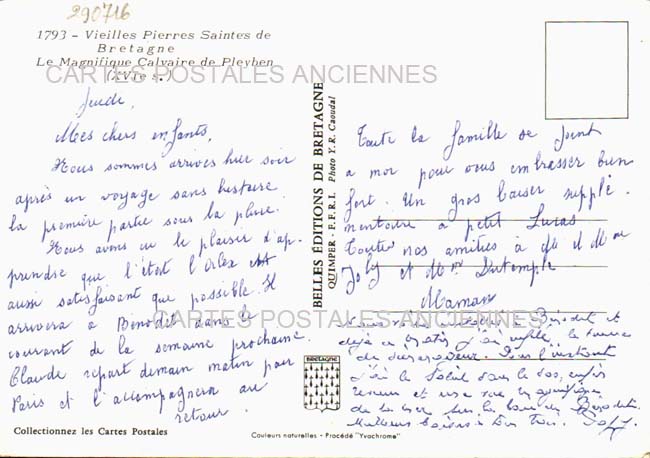 290716
1793 - Vieilles Pierres Saintes de
Bretagne
Le Magnifique Calvaire de Pleyben
(XVIe s.)
CARTES POSTALES ANCIENNES
Jeudi,
Mes chers enfants,
Nous sommes arrivés hier soir
après un voyage sans histoire
la première partie sous la pluie.
Nous avons eu le plaisir d'ap-
prendre que l'état d'Alex est
aussi satisfaisant que possible. Il
arrivera à Bénodet dans le
courant de la semaine prochaine
Claude repart demain matin pour
Paris et l'accompagnera au
retour.
Collectionnez les Cartes Postales
BELLES ÉDITIONS DE BRETAGNE
QUIMPER - F.F.R.I. Photo Y.R. Caoudal
BRETAGNE
Couleurs naturelles - Procédé "Yvachrome"
Toute la famille se joint
à moi pour vous embrasser bien
fort. Un gros baiser supplé-
mentaire à petit Lucas
Toutes nos amitiés à Mr et Mme
Joly et Mme Dutemple
Maman
CARTES POSTALES ANCIENNES
Bénodet et
déjà ce matin j'ai enfilé la tenue
de Pour l'instant
j'ai le Soleil dans le dos, enfin
revenu et une vue magnifique
de la mer sur la baie de Bénodet.
Meilleurs baisers à tous trois.